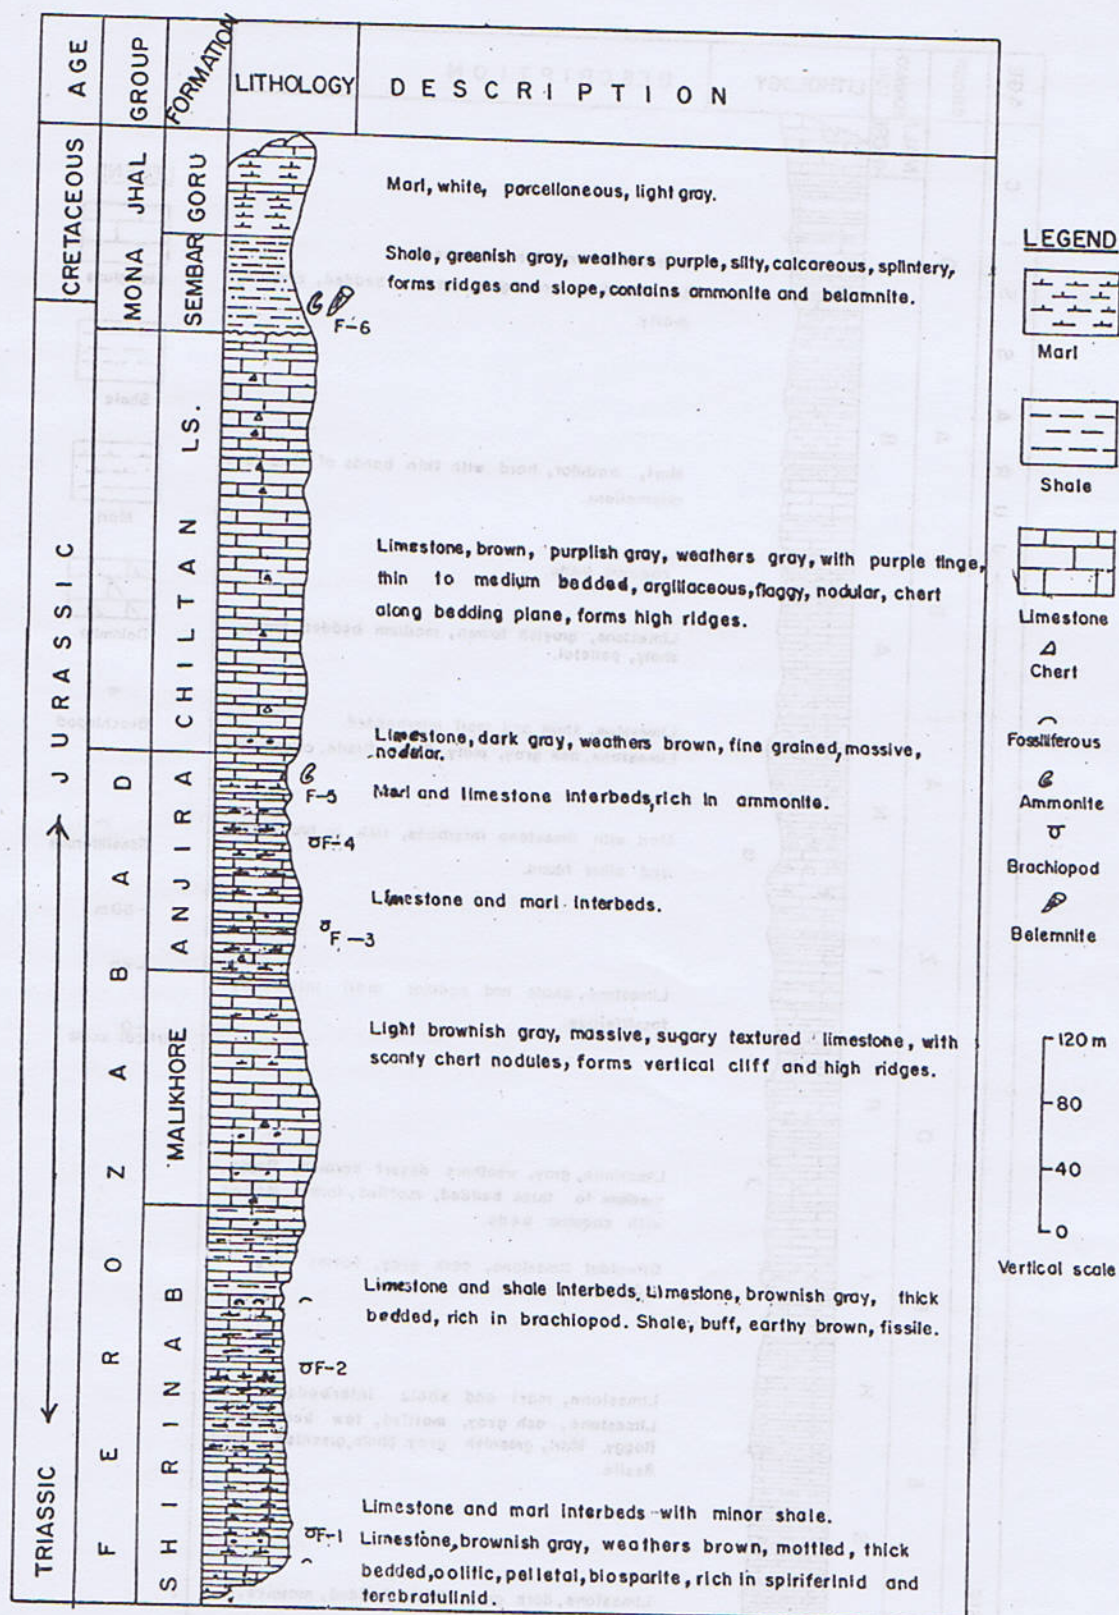 AGE
GROUP
FORMATION
LITHOLOGY
DESCRIPTION
CRETACEOUS
JURASSIC
TRIASSIC
MONA JHAL
FEROZABAD
GORU
SEMBAR
CHILTAN LS.
ANJIRA
MALIKHORE
SHIRINAB
Marl, white, porcellaneous, light gray.
Shale, greenish gray, weathers purple, silty, calcareous, splintery,
forms ridges and slope, contains ammonite and belamnite.
F-6
Limestone, brown, purplish gray, weathers gray, with purple tinge,
thin to medium bedded, argillaceous, flaggy, nodular, chert
along bedding plane, forms high ridges.
Limestone, dark gray, weathers brown, fine grained, massive,
nodular.
F-5
Marl and limestone interbeds, rich in ammonite.
F-4
Limestone and marl interbeds.
F-3
Light brownish gray, massive, sugary textured limestone, with
scanty chert nodules, forms vertical cliff and high ridges.
Limestone and shale interbeds. Limestone, brownish gray, thick
bedded, rich in brachiopod. Shale, buff, earthy brown, fissile.
F-2
Limestone and marl interbeds with minor shale.
F-1
Limestone, brownish gray, weathers brown, mottled, thick
bedded, oolitic, pelletal, biosparite, rich in spiriferinid and
terebratulinid.
LEGEND
Marl
Shale
Limestone
Chert
Fossiliferous
Ammonite
Brachiopod
Belemnite
120 m
80
40
0
Vertical scale